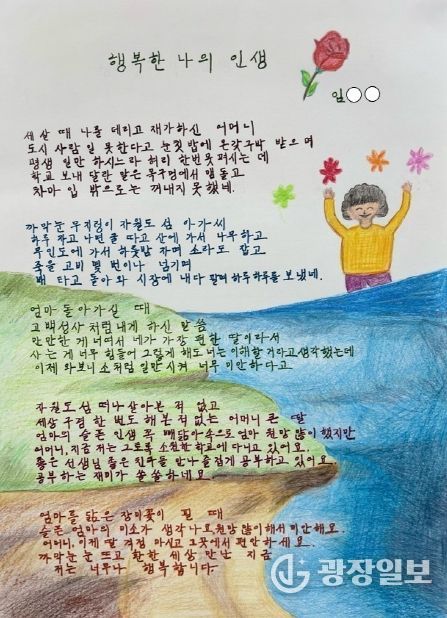 행복한 나의 인생
임○○
세살 때 나를 데리고 재가하신 어머니
도시 사람 일 못한다고 눈칫밥에 온갖구박 받으며
평생 일만 하시느라 허리 한번 못 펴시는 데
학교 보내 달란 말은 목구멍에서 맴돌고
차마 입 밖으로는 꺼내지 못했네.
까막눈 무지렁이 자월도 섬 아가씨
하루 자고 나면 굴 따고 산에 가서 나무하고
무인도에 가서 하룻밤 자며 소라도 잡고
죽을 고비 몇 번이나 넘기며
배 타고 돌아와 시장에 내다 팔며 하루하루를 보냈네.
엄마 돌아가실 때
고백성사 처럼 내게 하신 말씀
만만한 게 너여서 네가 가장 편한 딸이라서
사는 게 너무 힘들어 그렇게 해도 너는 이해할 거라고 생각했는데
이제 와보니 소처럼 일만 시켜 너무 미안하다고
자월도 섬 떠나 살아본 적 없고
세상 구경 한 번도 해본 적 없는 어머니 큰 딸
엄마의 슬픈 인생 꼭 빼닮아 속으로 엄마 원망 많이 했지만
어머니, 지금 저는 그토록 소원한 학교에 다니고 있어요.
좋은 선생님 좋은 친구를 만나 즐겁게 공부하고 있어요.
공부하는 재미가 쏠쏠하네요.
엄마를 닮은 장미꽃이 필 때
슬픈 엄마의 미소가 생각나요 원망 많이해서 미안해요.
어머니, 이제 딸 걱정 마시고 그곳에서 편안하세요.
까막눈 뜨고 환한 세상 만난 지금
저는 너무나 행복합니다.
광장일보